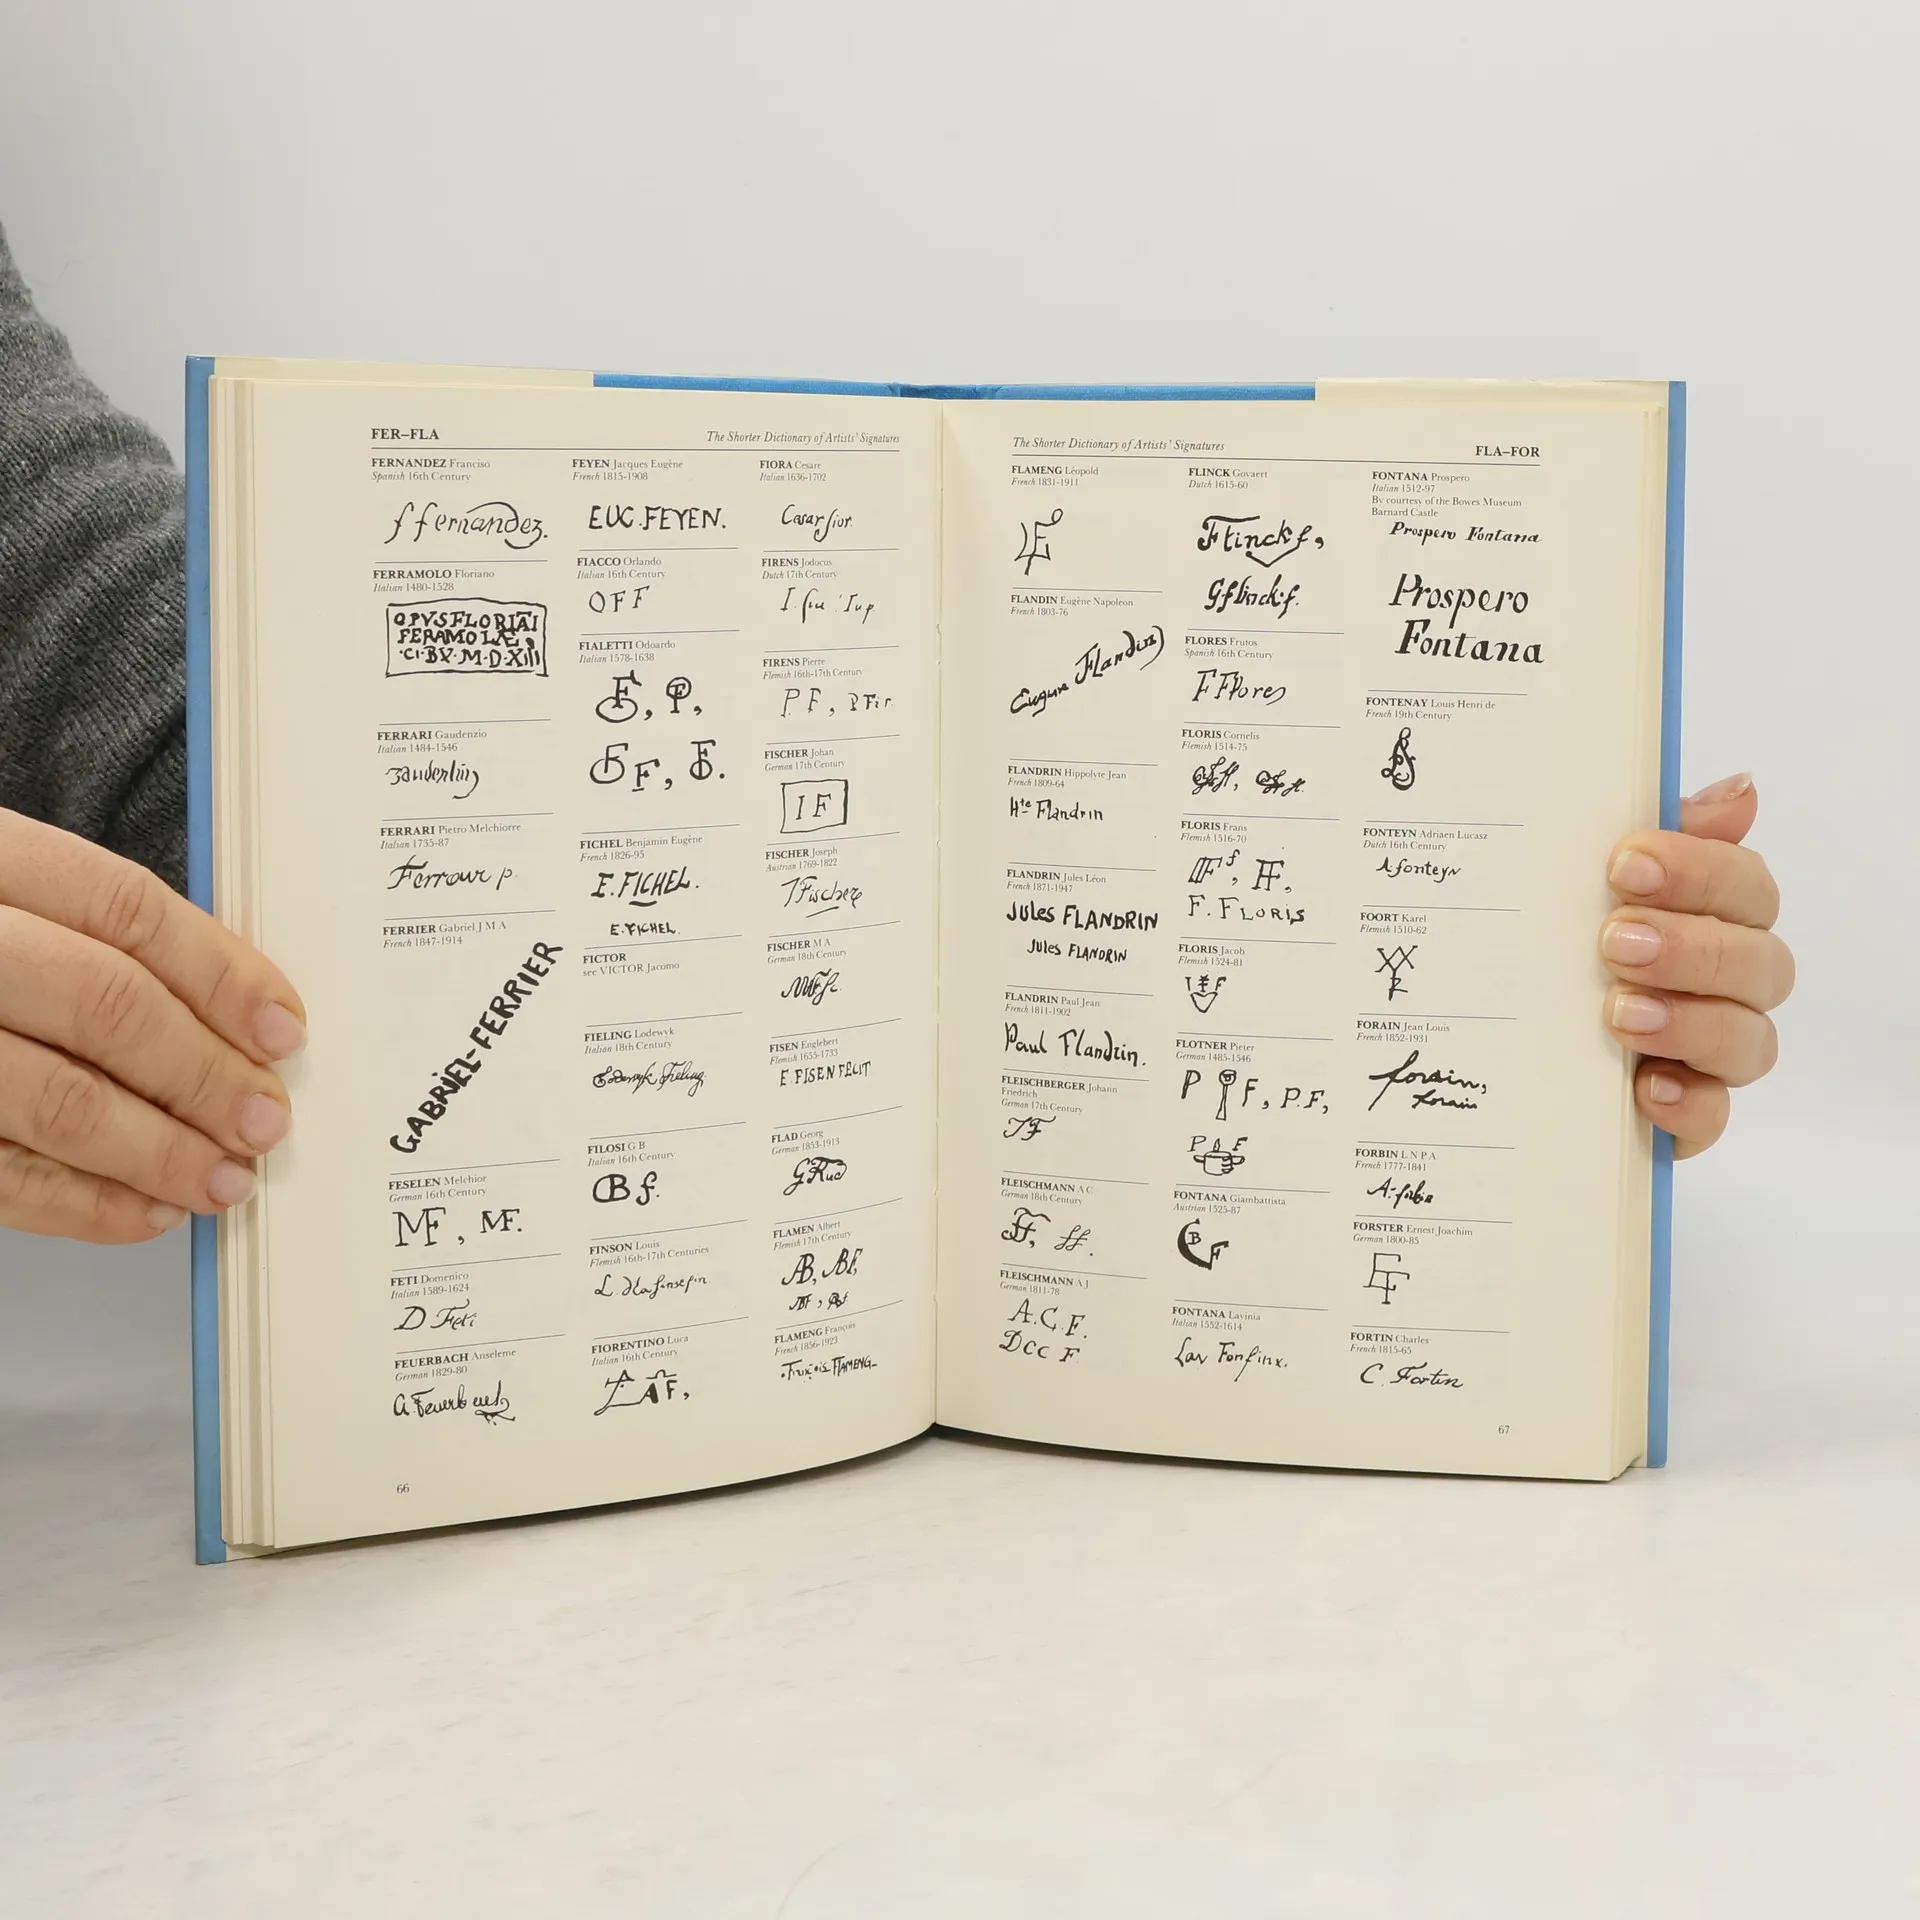 FER–FLA
The Shorter Dictionary of Artists' Signatures
FERNANDEZ Franciso
Spanish 16th Century
f fernandez.
FERRAMOLO Floriano
Italian 1480-1528
OPVS FLORIAI
FERAMOLÆ
·CI·BX·M·D·XIII
FERRARI Gaudenzio
Italian 1484-1546
FERRARI Pietro Melchiorre
Italian 1735-87
Ferrour p.
FERRIER Gabriel J M A
French 1847-1914
GABRIEL-FERRIER
FESELEN Melchior
German 16th Century
MF, MF.
FETI Domenico
Italian 1589-1624
D Feti
FEUERBACH Anseleme
German 1829-80
A. Feuerbach
66
FEYEN Jacques Eugène
French 1815-1908
EUG.FEYEN.
FIACCO Orlando
Italian 16th Century
OFF
FIALETTI Odoardo
Italian 1578-1638
FICHEL Benjamin Eugène
French 1826-95
E.FICHEL.
E.FICHEL.
FICTOR
see VICTOR Jacomo
FIELING Lodewyk
Italian 18th Century
Lodewyk Fieling
FILOSI G B
Italian 16th Century
B f.
FINSON Louis
Flemish 16th-17th Centuries
FIORENTINO Luca
Italian 16th Century
FIORA Cesare
Italian 1636-1702
Cesar fior.
FIRENS Jodocus
Dutch 17th Century
FIRENS Pierre
Flemish 16th-17th Century
P. F, P Fir.
FISCHER Johan
German 17th Century
IF
FISCHER Joseph
Austrian 1769-1822
J Fischer
FISCHER M A
German 18th Century
FISEN Englebert
Flemish 1655-1733
E. FISEN FECIT
FLAD Georg
German 1853-1913
FLAMEN Albert
Flemish 17th Century
AB, ABf,
FLAMENG François
French 1856-1923
François FLAMENG
The Shorter Dictionary of Artists' Signatures
FLA–FOR
FLAMENG Léopold
French 1831-1911
LF
FLANDIN Eugène Napoleon
French 1803-76
Eugène Flandin
FLANDRIN Hippolyte Jean
French 1809-64
Hte Flandrin
FLANDRIN Jules Léon
French 1871-1947
JULES FLANDRIN
JULES FLANDRIN
FLANDRIN Paul Jean
French 1811-1902
Paul Flandrin.
FLEISCHBERGER Johann
Friedrich
German 17th Century
JF
FLEISCHMANN A C
German 18th Century
FLEISCHMANN A J
German 1811-78
A.C.F.
Dcc F
FLINCK Govaert
Dutch 1615-60
Flinck f,
G.flinck.f.
FLORES Frutos
Spanish 16th Century
F Flores
FLORIS Cornelis
Flemish 1514-75
FLORIS Frans
Flemish 1516-70
FF f, FF,
F. FLORIS
FLORIS Jacob
Flemish 1524-81
I F
FLOTNER Pieter
German 1485-1546
P F, P.F,
FONTANA Giambattista
Austrian 1525-87
B F
FONTANA Lavinia
Italian 1552-1614
FONTANA Prospero
Italian 1512-97
By courtesy of the Bowes Museum
Barnard Castle
Prospero Fontana
Prospero
Fontana
FONTENAY Louis Henri de
French 19th Century
FONTEYN Adriaen Lucasz
Dutch 16th Century
A.fonteyn
FOORT Karel
Flemish 1510-62
FORAIN Jean Louis
French 1852-1931
forain,
forain
FORBIN L N P A
French 1777-1841
FORSTER Ernest Joachim
German 1800-85
EF
FORTIN Charles
French 1815-65
C. Fortin
67